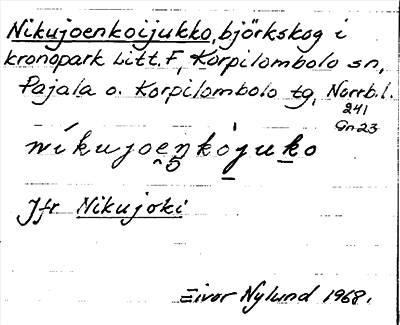 Nikujoenkoijukko, björkskog i
kronopark Litt. F, Korpilombolo sn,
Pajala o. Korpilombolo tg, Norrb. l.
241
Gn 23
Jfr Nikujoki
Eivor Nylund 1968.